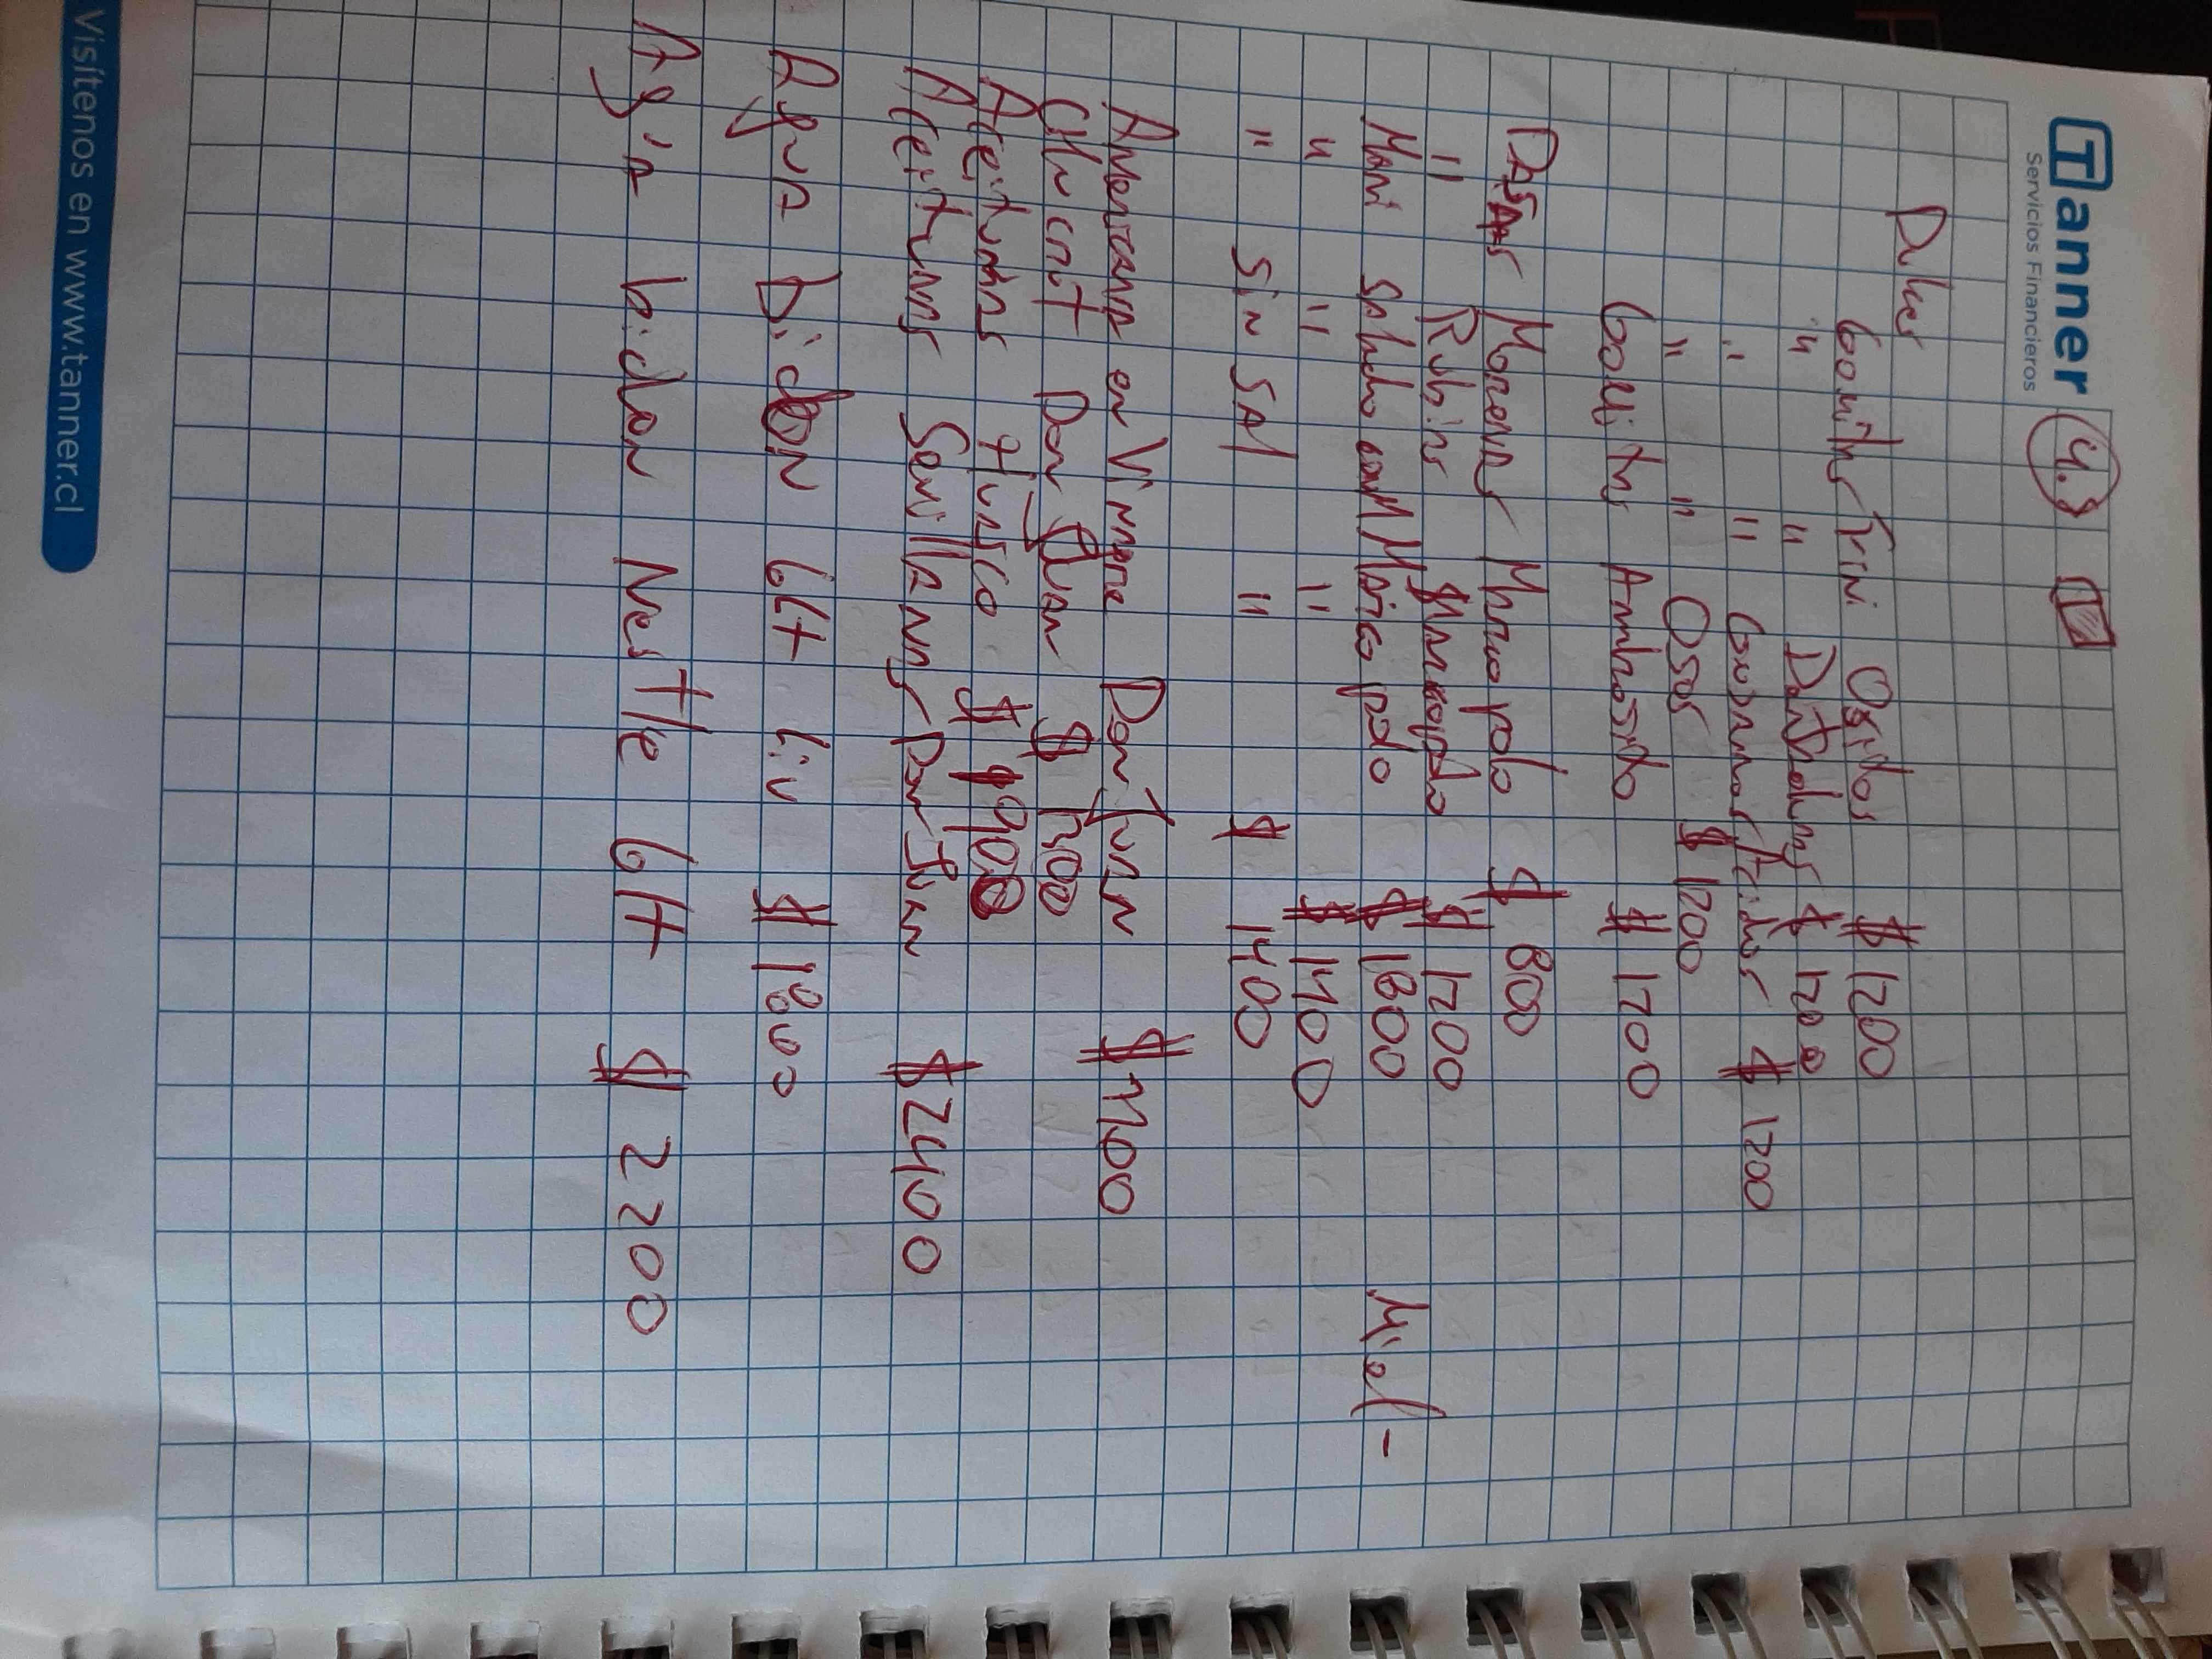 Tanner 4.8
Servicios Financieros
Dulces
Gomitas Trini Ositos $ 1200
" " Dentaduras $ 1200
" " Gusanos Acidos $ 1200
" " Osos $ 1200
Gollitas Ambrosito $ 1700
Pasas Morenas Marco polo $ 800
" Rubias Marcopolo $ 1200
Mani Salado Marco polo $ 1800 Miel-
" " " $ 1400
" Sin Sal " $ 1400
Americana en Vinagre Don Juan $ 1100
Chucrut Don Juan $ 1300
Aceitunas Huasco $ 1900
Aceitunas Sevillanas Don Juan $ 2400
Agua bidon 6Lt Liv $ 1800
Agua bidon Nestle 6lt $ 2200
Visítenos en www.tanner.cl